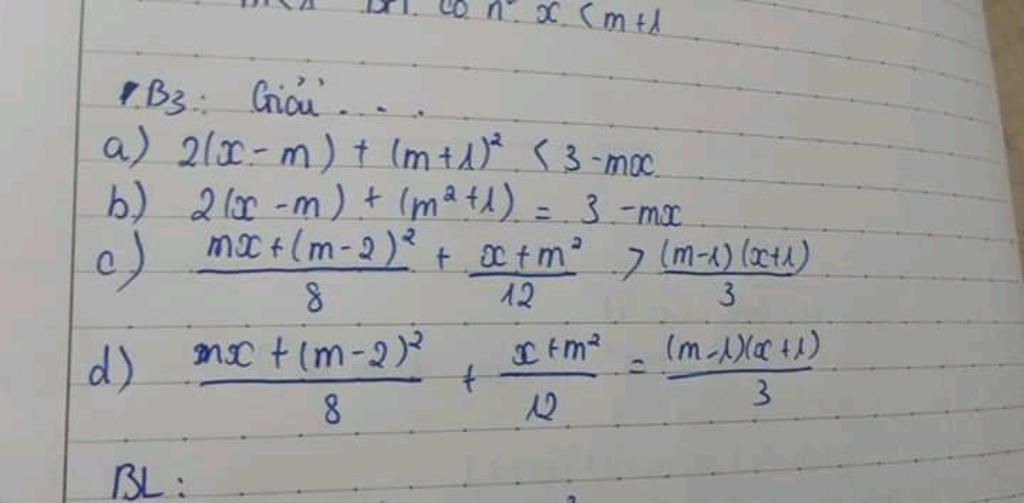 có n⁰ x < m+1
B3: Giải ....
a) 2(x - m) + (m+1)² < 3 - mx
b) 2(x - m) + (m²+1) = 3 - mx
c) \frac{mx + (m-2)²}{8} + \frac{x + m²}{12} > \frac{(m-1)(x+1)}{3}
d) \frac{mx + (m-2)²}{8} + \frac{x + m²}{12} = \frac{(m-1)(x+1)}{3}
BL: